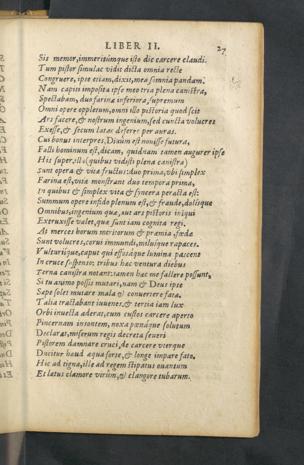 LIBER II. 27
Sis memor, immeritumque isto die carcere claudi.
Tum pistor simulac vidit dicta omnia recte
Congruere, ipse etiam, dixit, mea somnia pandam.
Nam capiti imposita ipse meo tria plena canistra,
Spectabam, duo farina inferiora, supremum
Omni opere opplerum, omni illo pistoria quod scit
Ars facere, & nostrum ingenium, sed cuncta volucres
Exesse, & secum latas deferre per auras.
Cui bonus interpres, Divum est novisse futura,
Facti hominum est, dicam, quidnam tamen augurer ipse
His super. isto (quibus vidisti plena canistra)
sunt opera & vitæ fructus: duo prima, ubi simplex
Farina est, vitæ monstrant duo tempora prima,
In quibus & simplex vita & syncera peracta est:
Summum opere infido plenum est, & fraude, dolisque
Omnibus, ingenium quæ, aut ars pistoris iniqui
Extruxisse valet, quæ sunt iam cognita regi,
At merces horum meritorum & præmia fœda
Sunt volucres, corui immundi, miluique rapaces.
Vulturiique, caput qui effosaque lumina pascent
In cruce suspenso: tribus hæc ventura diebus
Terna canistra notant: tamen hac me fallere possunt,
Si tu animo possis mutari, nam & Deus ipse
Sæpe solet mutare mala & convertere fata.
Talia tractabant iuuenes, & tertia iam lux
Orbi inuecta aderat, cum custos carcere aperto
Pincernam insontem, noxa pœnaque solutum
Declarat, miserum regis decreta seueri
Pistorem damnare cruci, de carcere uterque
Ducitur haud aqua sorte, & longe impare fato.
Hic ad tigna, ille ad regem stipatus ouantum
Et lætus clamore virûm, & clangore tubarum.